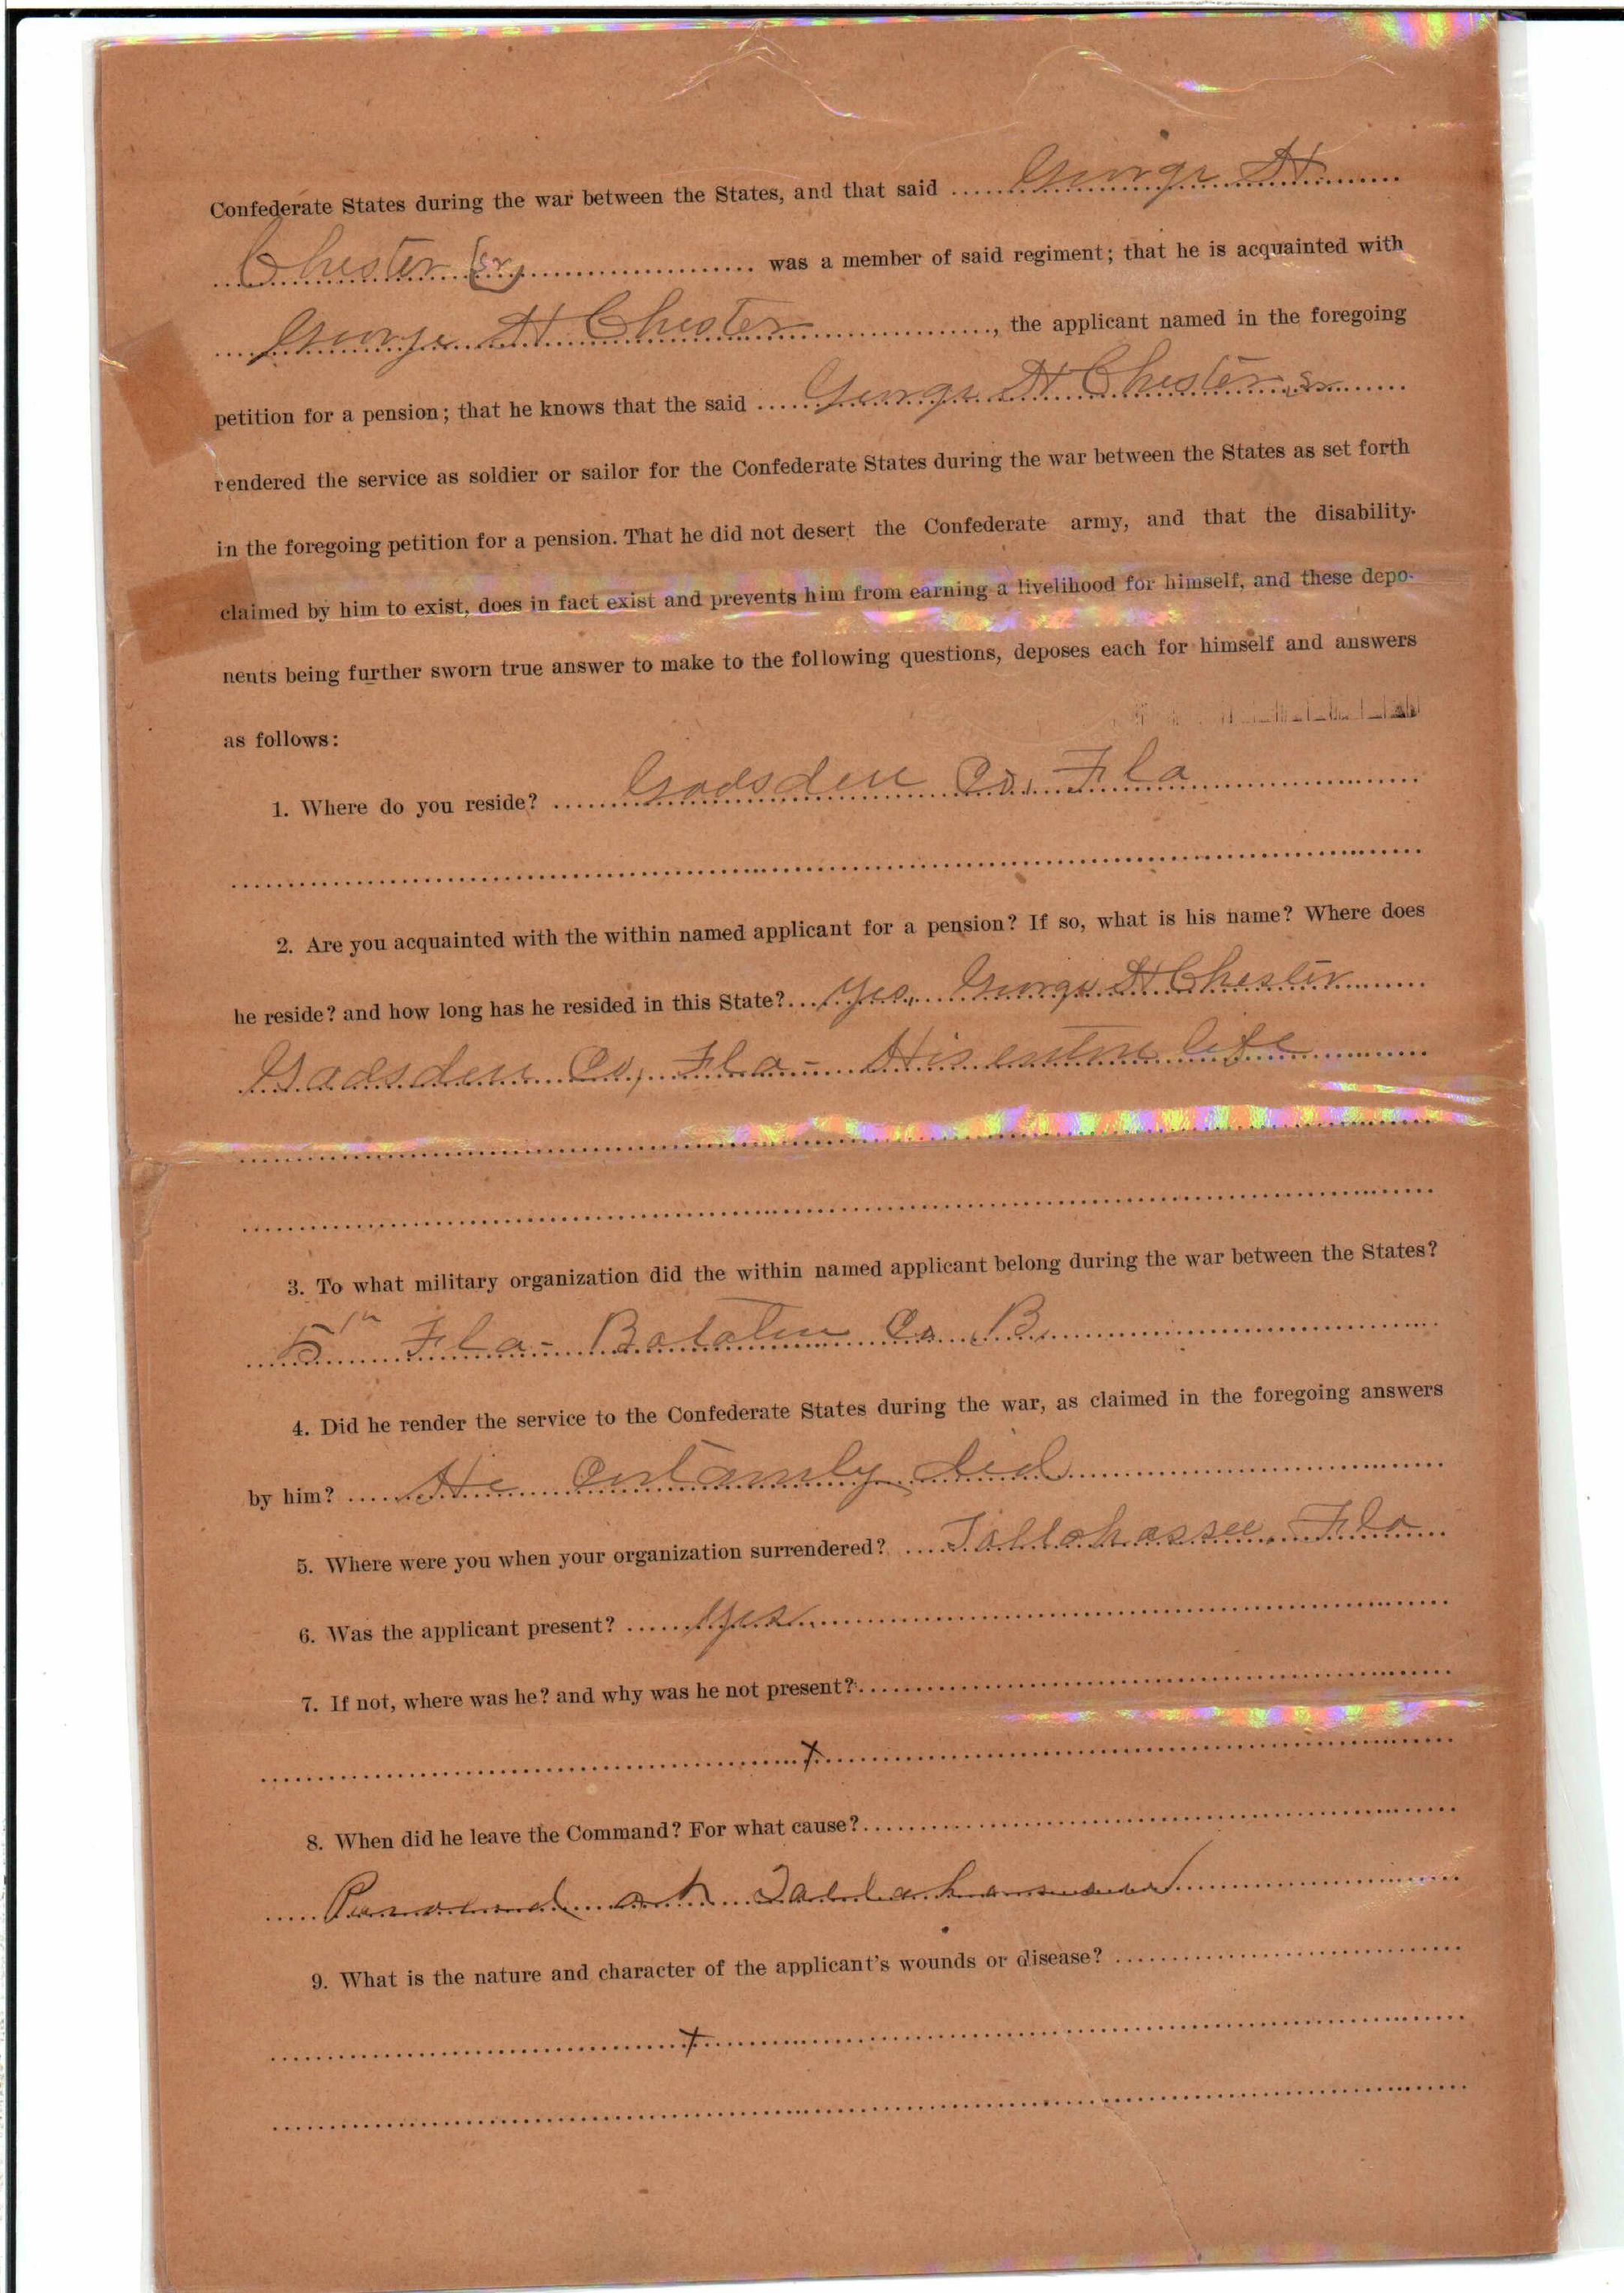 Confederate States during the war between the States, and that said George H
Chester (Sr) was a member of said regiment; that he is acquainted with
George H Chester, the applicant named in the foregoing
petition for a pension; that he knows that the said George H Chester Sr
rendered the service as soldier or sailor for the Confederate States during the war between the States as set forth
in the foregoing petition for a pension. That he did not desert the Confederate army, and that the disability
claimed by him to exist, does in fact exist and prevents him from earning a livelihood for himself, and these depo-
nents being further sworn true answer to make to the following questions, deposes each for himself and answers
as follows:
1. Where do you reside? Gadsden Co, Fla
2. Are you acquainted with the within named applicant for a pension? If so, what is his name? Where does
he reside? and how long has he resided in this State? Yes, George H Chester
Gadsden Co, Fla - His entire life
3. To what military organization did the within named applicant belong during the war between the States?
5th Fla - Batalen Co B
4. Did he render the service to the Confederate States during the war, as claimed in the foregoing answers
by him? He Certainly did
5. Where were you when your organization surrendered? Tallahassee, Fla
6. Was the applicant present? Yes
7. If not, where was he? and why was he not present?
x
8. When did he leave the Command? For what cause?
at Tallahassee
9. What is the nature and character of the applicant's wounds or disease?
x